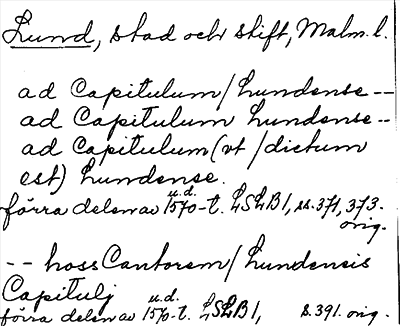 Lund, stad och stift, Malm. l.
ad Capitulum / Lundense --
ad Capitulum Lundense --
ad Capitulum (vt / dictum
est) Lundense.
förra delen av u.d. 1570-t. LSLB1, ss. 371, 373.
orig.
-- hoss Cantorem / Lundensis
Capitulj
förra delen av u.d. 1570-t. LSLB1, s. 391. orig.